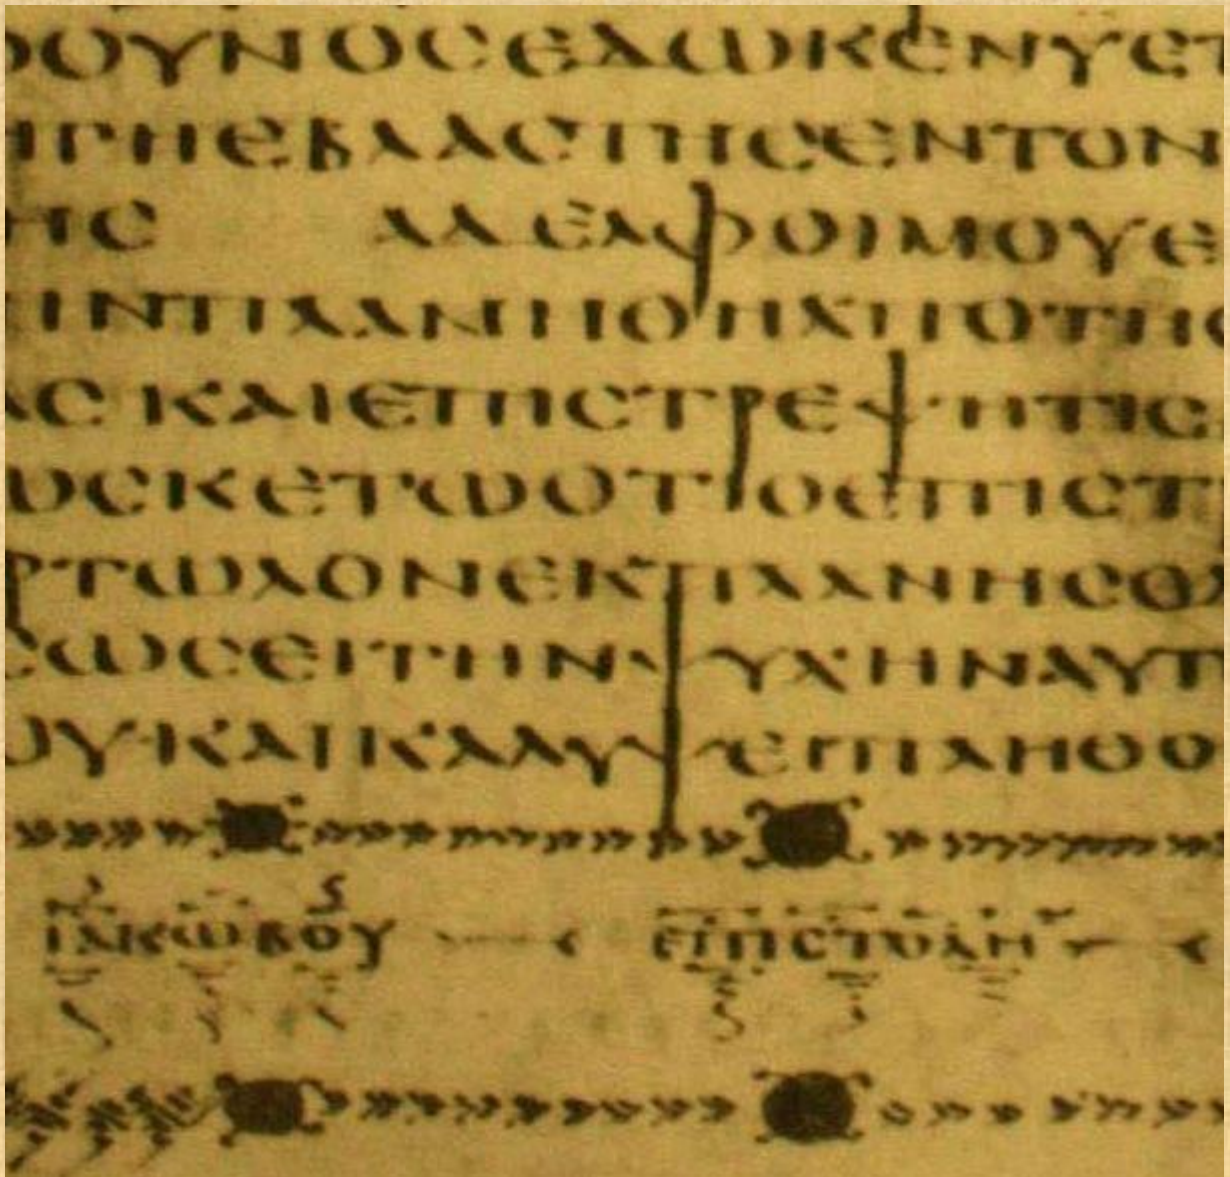 ΟΟΥΝΟϹΕΔΩΚΕΝΥΕΤ
ΗΓΗΕΒΛΑϹΤΗϹΕΝΤΟΝ
ΗϹ ΑΔΕΛΦΟΙΜΟΥΕ
ΙΝΠΛΑΝΗΘΗΑΠΟΤΗϹ
ΑϹ ΚΑΙΕΠΙϹΤΡΕΨΗΤΙϹ
ΩϹΚΕΤΩΟΤΙΟΕΠΙϹΤ
ΡΤΩΛΟΝΕΚΠΛΑΝΗϹΟΔ
ϹΩϹΕΙΤΗΝΨΥΧΗΝΑΥΤ
ΟΥΚΑΙΚΑΛΥΨΕΙΠΛΗΘΟ
ΙΑΚΩΒΟΥ ΕΠΙϹΤΟΛΗ